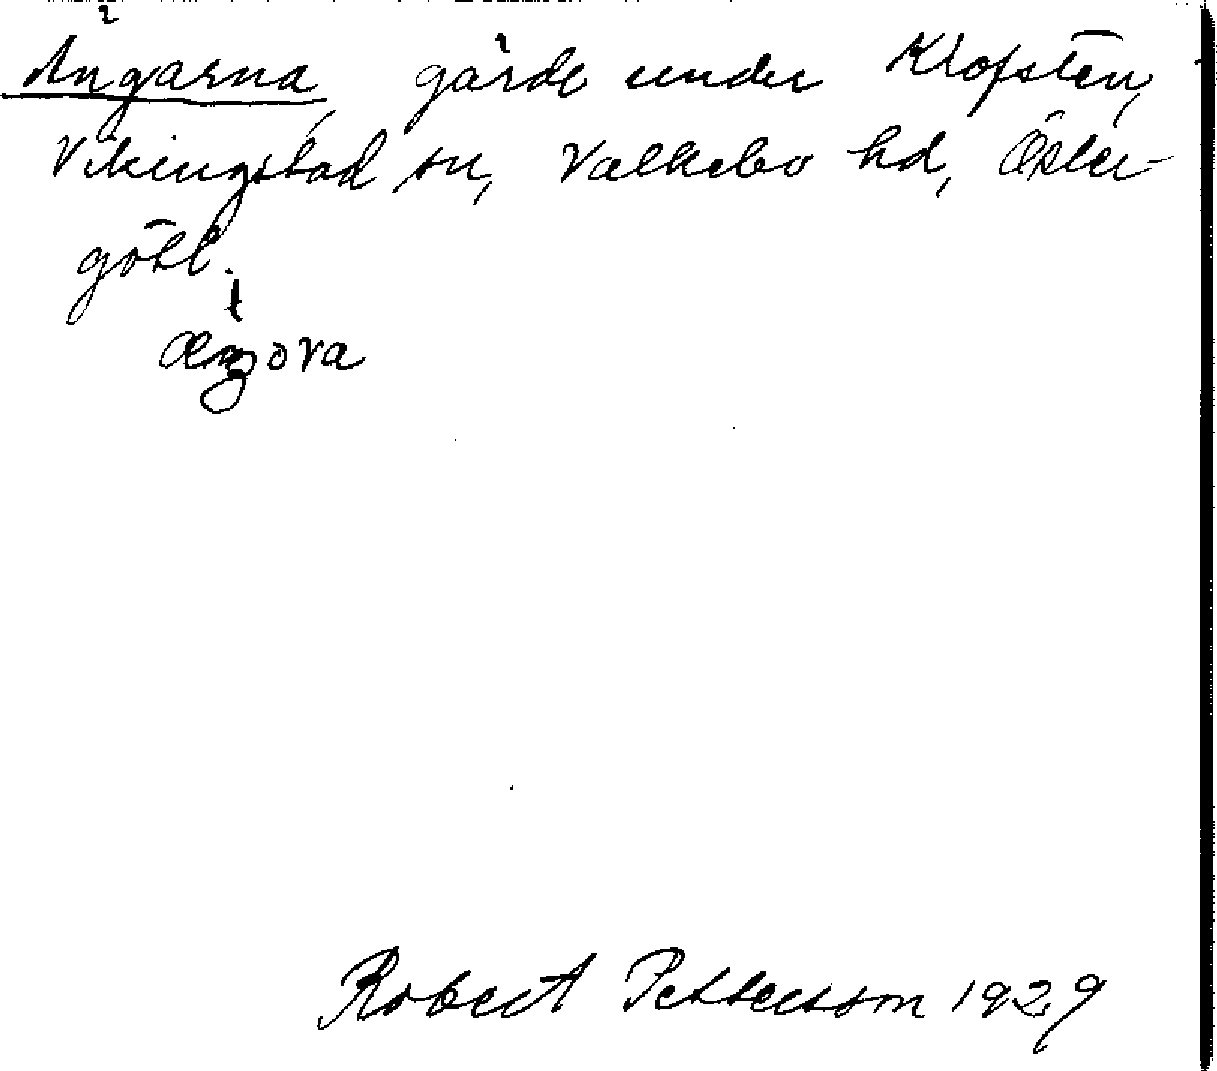 Ängarna, gärde under Klofsten,
Vikingstad sn, Valkebo hd, Öster-
götl.
Robert Pettersson 1929